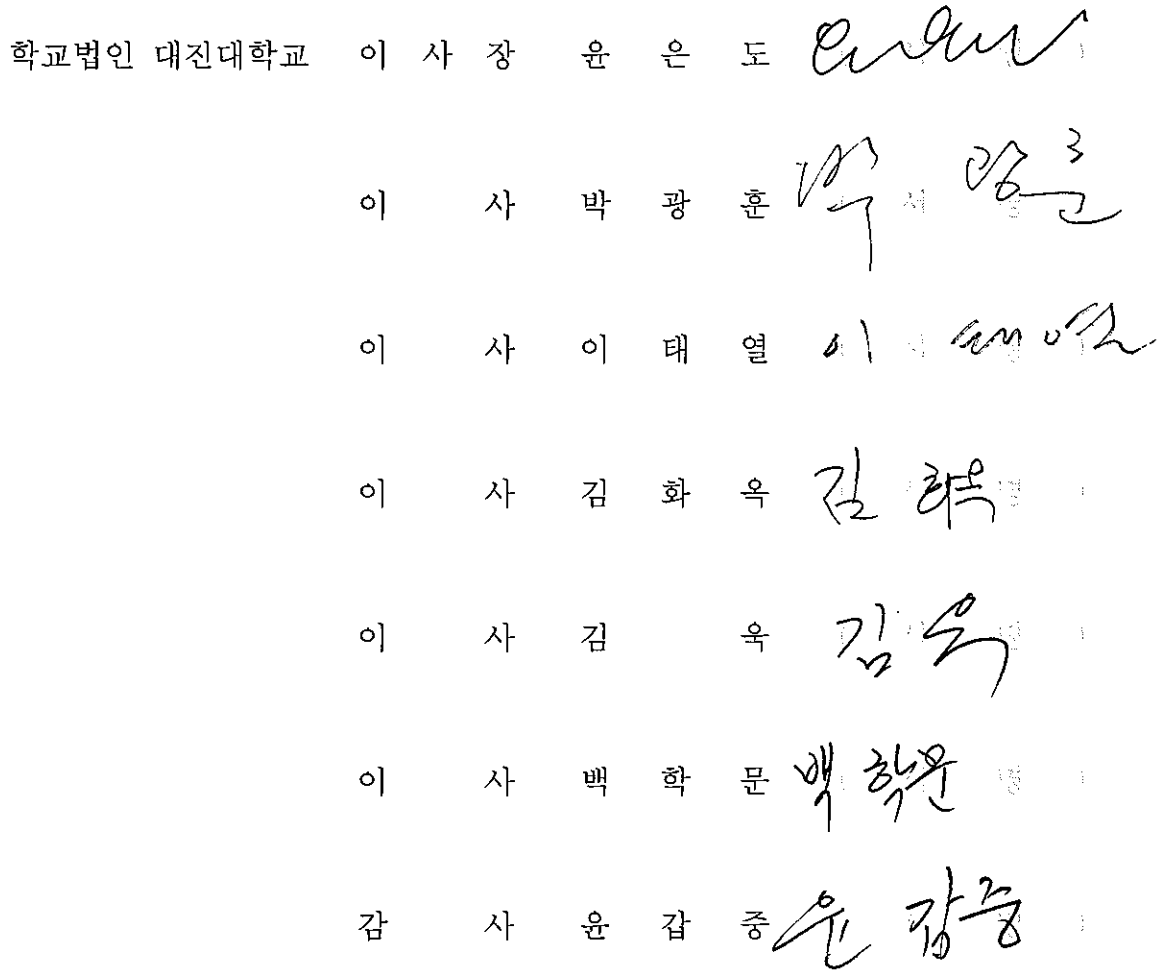 학교법인 대진대학교 이 사 장 윤 은 도
이 사 박 광 훈 박 광훈
이 사 이 태 열 이 태열
이 사 김 화 옥 김 화옥
이 사 김 욱 김 욱
이 사 백 학 문 백 학문
감 사 윤 갑 중 윤 갑중